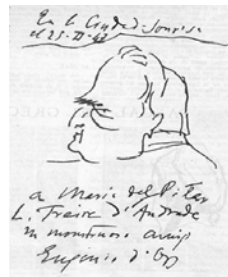 En la Ciudad Sonrisa
el 25-II-42
a Maria del Pilar
L. Freire d'Andrade
su monstruoso amigo
Eugenio d'Ors